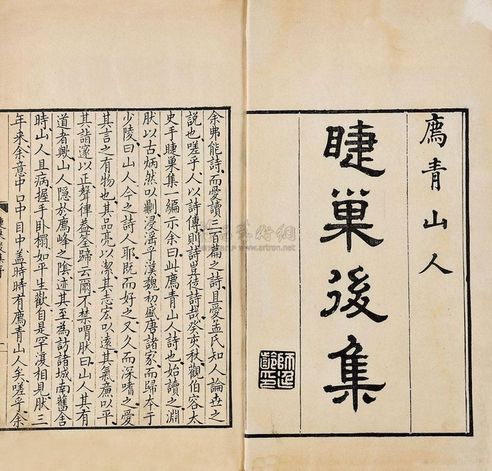 廌青山人
睫巢後集
余弗能詩而愛讀三百篇之詩且愛孟氏知人論世之
說也嗟乎人以詩傳則詩豈徒詩哉癸亥秋觀伯容太
史手睫巢集一編示余曰此廌青山人詩也始讀之淵
肰以古炳然以剛浸淫乎漢魏初盛唐諸家而歸本于
少陵曰山人今之詩人耶既而好之又久而深嗜之愛
其言之有物也其品亮以潔其志宏以遠其氣廉以平
其詣邃以正聲律
道者歟山人隱於廌峰之陰迹其至為訪諸城南舊舍
時山人且病握手卧榻如平生歡自是罕渡相見肰三
年来余意中口中目中盖時時有廌青山人矣嗟乎余
www.artron.net